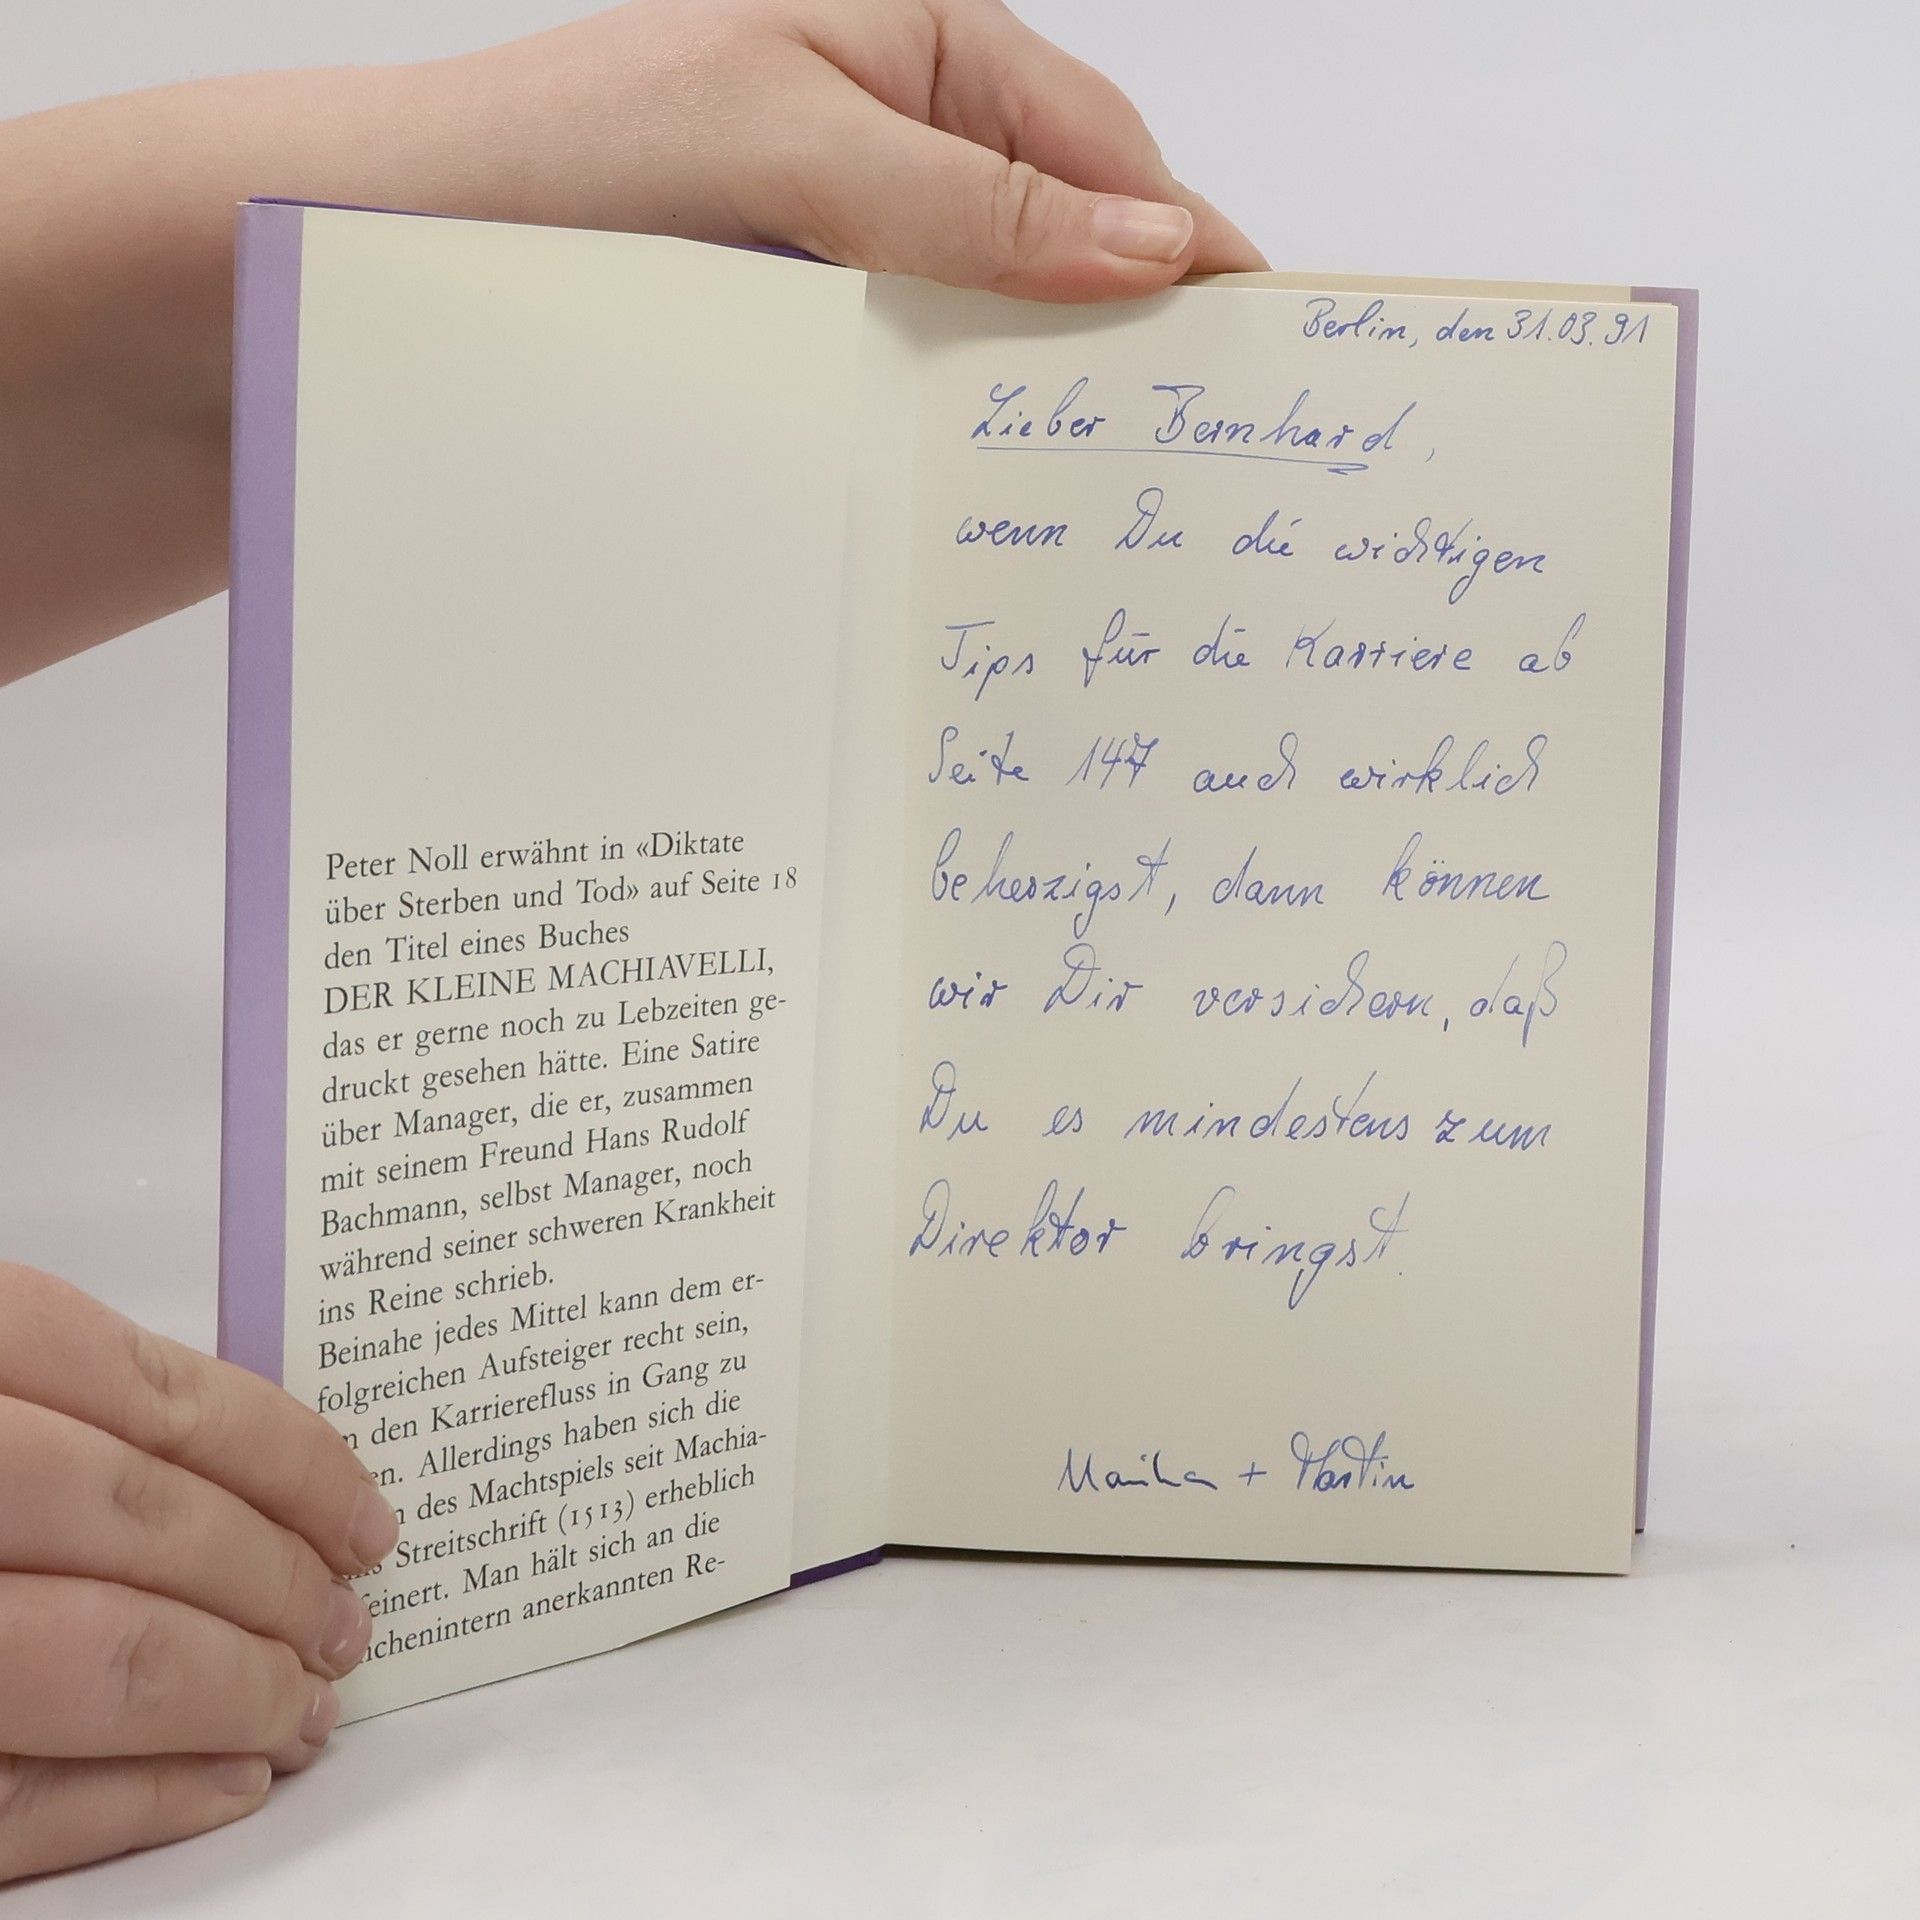 Peter Noll erwähnt in «Diktate
über Sterben und Tod» auf Seite 18
den Titel eines Buches
DER KLEINE MACHIAVELLI,
das er gerne noch zu Lebzeiten ge-
druckt gesehen hätte. Eine Satire
über Manager, die er, zusammen
mit seinem Freund Hans Rudolf
Bachmann, selbst Manager, noch
während seiner schweren Krankheit
ins Reine schrieb.
Beinahe jedes Mittel kann dem er-
folgreichen Aufsteiger recht sein,
den Karrierefluss in Gang zu
en. Allerdings haben sich die
des Machtspiels seit Machia-
Streitschrift (1513) erheblich
feinert. Man hält sich an die
nchenintern anerkannten Re-
Berlin, den 31.03.91
Lieber Bernhard,
wenn Du die wichtigen
Tips für die Karriere ab
Seite 147 auch wirklich
beherzigst, dann können
wir Dir versichern, daß
Du es mindestens zum
Direktor bringst.
+ Martin